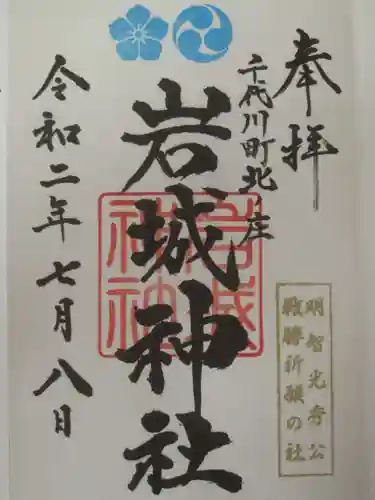 奉拝
千代川町北ノ庄
岩城神社
岩城
神社
令和二年七月八日
明智光秀公
戦勝祈願の社